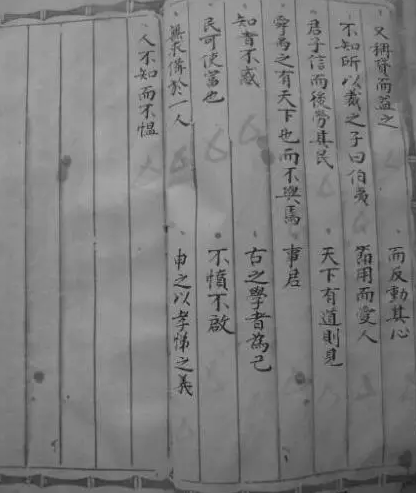 又稱貸而益之
而反動其心
不知所以裁之子曰伯夷
節用而愛人
君子信而後勞其民
天下有道則見
舜禹之有天下也而不與焉
事君
知者不惑
古之學者為己
民可使富也
不憤不啟
無求備於一人
申之以孝悌之義
人不知而不慍